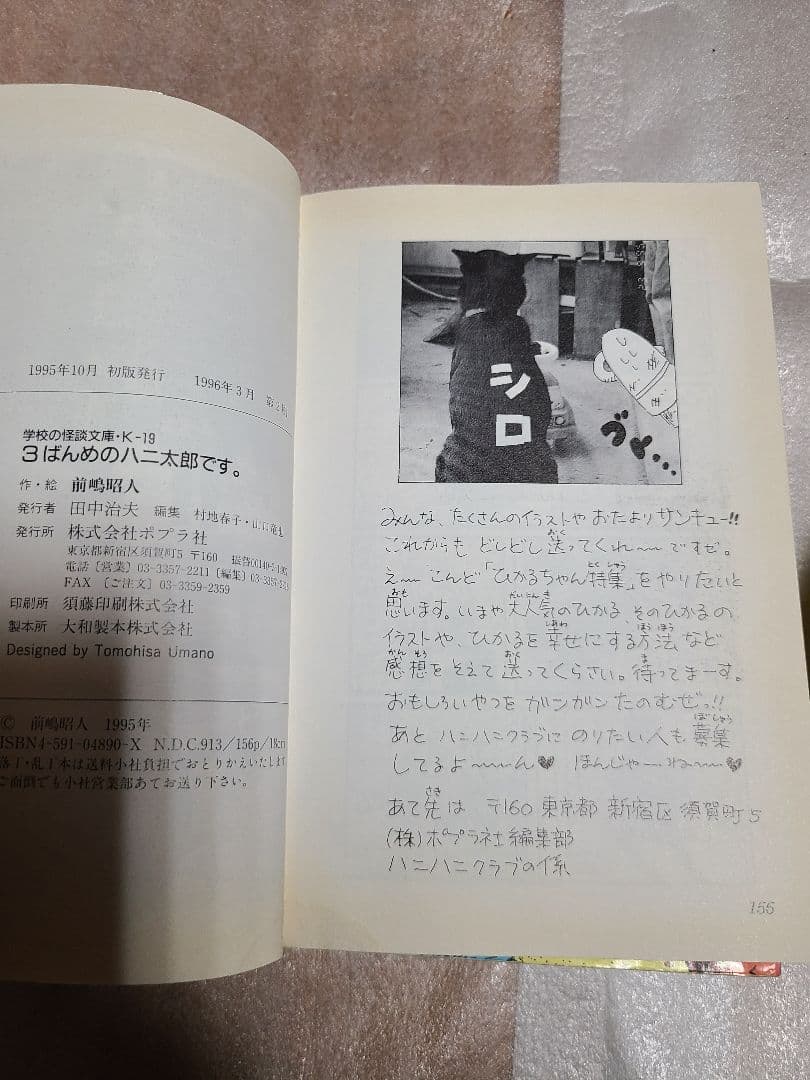 1995年10月 初版発行 1996年3月 第2刷
学校の怪談文庫・K-19
3ばんめのハニ太郎です。
作・絵 前嶋昭人
発行者 田中治夫 編集 村地春子・山口竜也
発行所 株式会社ポプラ社
東京都新宿区須賀町5 〒160 振替00140-3-
電話〔営業〕03-3357-2211〔編集〕03-3357-
FAX 〔ご注文〕03-3359-2359
印刷所 須藤印刷株式会社
製本所 大和製本株式会社
Designed by Tomohisa Umano
© 前嶋昭人 1995年
ISBN4-591-04890-X N.D.C.913/156p/18cm
落丁・乱丁本は送料小社負担でおとりかえいたします
ご面倒でも小社営業部あてお送り下さい。
シロ
ブイ…
みんな、たくさんのイラストや おたより サンキュー!!
これからも どしどし 送ってくれ〜〜 ですぜ。
え〜 こんど「ひかるちゃん特集」をやりたいと
思います。いまや 大人気のひかる、そのひかるの
イラストや、ひかるを 幸せにする方法 など
感想を そえて 送ってくらさい。待ってまーす。
おもしろいやつを ガンガン たのむぜっ!!
あと ハニハニクラブに のりたい人も 募集
してるよ〜〜ん♥ ほんじゃ〜ね〜♥
あて先は 〒160 東京都 新宿区 須賀町5
(株)ポプラ社 編集部
ハニハニクラブの係
155